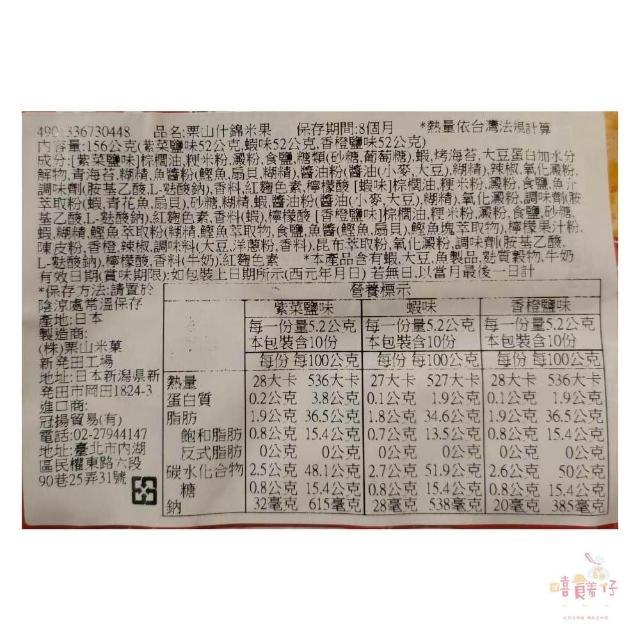 4901336730448 品名:栗山什錦米果 保存期間:8個月 *熱量依台灣法規計算
內容量:156公克(紫菜鹽味52公克,蝦味52公克,香橙鹽味52公克)
成分:[紫菜鹽味]棕櫚油,粳米粉,澱粉,食鹽,糖類(砂糖,葡萄糖),蝦,烤海苔,大豆蛋白加水分
解物,青海苔,糊精,魚醬粉(鰹魚,扇貝),糊精,醬油粉(醬油(小麥,大豆),糊精),辣椒,氧化澱粉,
調味劑(胺基乙酸,L-麩酸鈉),香料,紅麴色素,檸檬酸 [蝦味]棕櫚油,粳米粉,澱粉,食鹽,魚介
萃取粉(蝦,青花魚,扇貝),砂糖,糊精,蝦,醬油粉(醬油(小麥,大豆),糊精),氧化澱粉,調味劑(胺
基乙酸,L-麩酸鈉),紅麴色素,香料(蝦),檸檬酸 [香橙鹽味]棕櫚油,粳米粉,澱粉,食鹽,砂糖,
蝦,糊精,鰹魚萃取粉(糊精,鰹魚萃取物,食鹽,魚醬(鰹魚,扇貝),鰹魚塊萃取物),檸檬果汁粉,
陳皮粉,香橙,辣椒,調味料(大豆,洋蔥粉,香料),昆布萃取粉,氧化澱粉,調味劑(胺基乙酸,
L-麩酸鈉),檸檬酸,香料(牛奶),紅麴色素 *本產品含有蝦,大豆,魚製品,麩質穀物,牛奶
有效日期(賞味期限):如包裝上日期所示(西元年月日) 若無日,以當月最後一日計
*保存方法:請置於
陰涼處常溫保存
產地:日本
製造商:
(株)栗山米菓
新発田工場
地址:日本新潟県新
発田市岡田1824-3
進口商:
冠揚貿易(有)
電話:02-27944147
地址:臺北市內湖
區民權東路六段
90巷25弄31號
營養標示
紫菜鹽味 蝦味 香橙鹽味
每一份量5.2公克 每一份量5.2公克 每一份量5.2公克
本包裝含10份 本包裝含10份 本包裝含10份
每份 每100公克 每份 每100公克 每份 每100公克
熱量 28大卡 536大卡 27大卡 527大卡 28大卡 536大卡
蛋白質 0.2公克 3.8公克 0.1公克 1.9公克 0.1公克 1.9公克
脂肪 1.9公克 36.5公克 1.8公克 34.6公克 1.9公克 36.5公克
飽和脂肪 0.8公克 15.4公克 0.7公克 13.5公克 0.8公克 15.4公克
反式脂肪 0公克 0公克 0公克 0公克 0公克 0公克
碳水化合物 2.5公克 48.1公克 2.7公克 51.9公克 2.6公克 50公克
糖 0.8公克 15.4公克 0.8公克 15.4公克 0.8公克 15.4公克
鈉 32毫克 615毫克 28毫克 538毫克 20毫克 385毫克